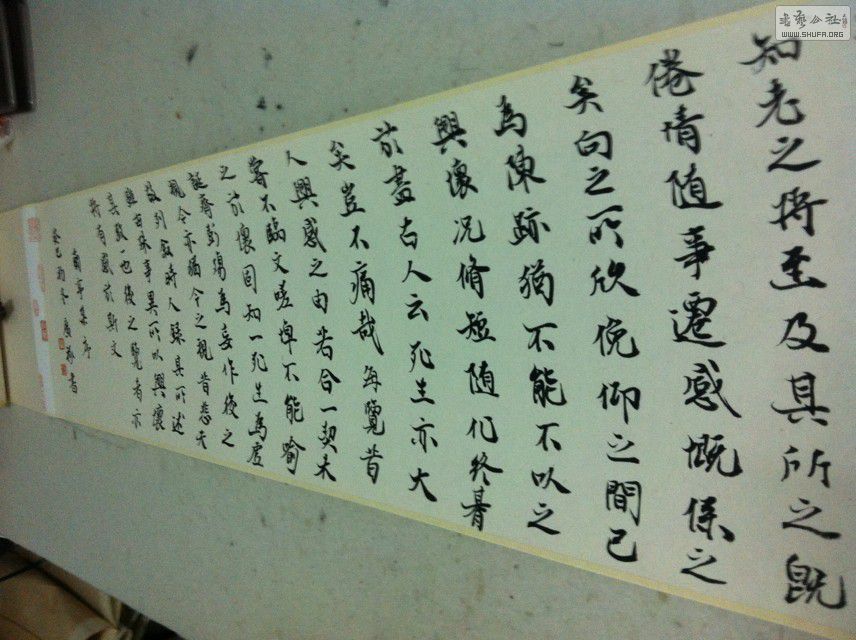 知老之将至及其所之既
倦情随事遷感慨係之
矣向之所欣俛仰之間已
為陳跡猶不能不以之
興懷况脩短随化終朞
於盡古人云死生亦大
矣豈不痛哉每覽昔
人興感之由若合一契未
嘗不臨文嗟悼不能喻
之於懷固知一死生為虛
誕齊彭殤為妄作後之
視今亦猶今之視昔悲夫
故列叙時人録其所述
雖世殊事異所以興懷
其致一也後之覽者亦
将有感於斯文
蘭亭集序
癸巳初冬 書
書藝公社
WWW.SHUFA.ORG